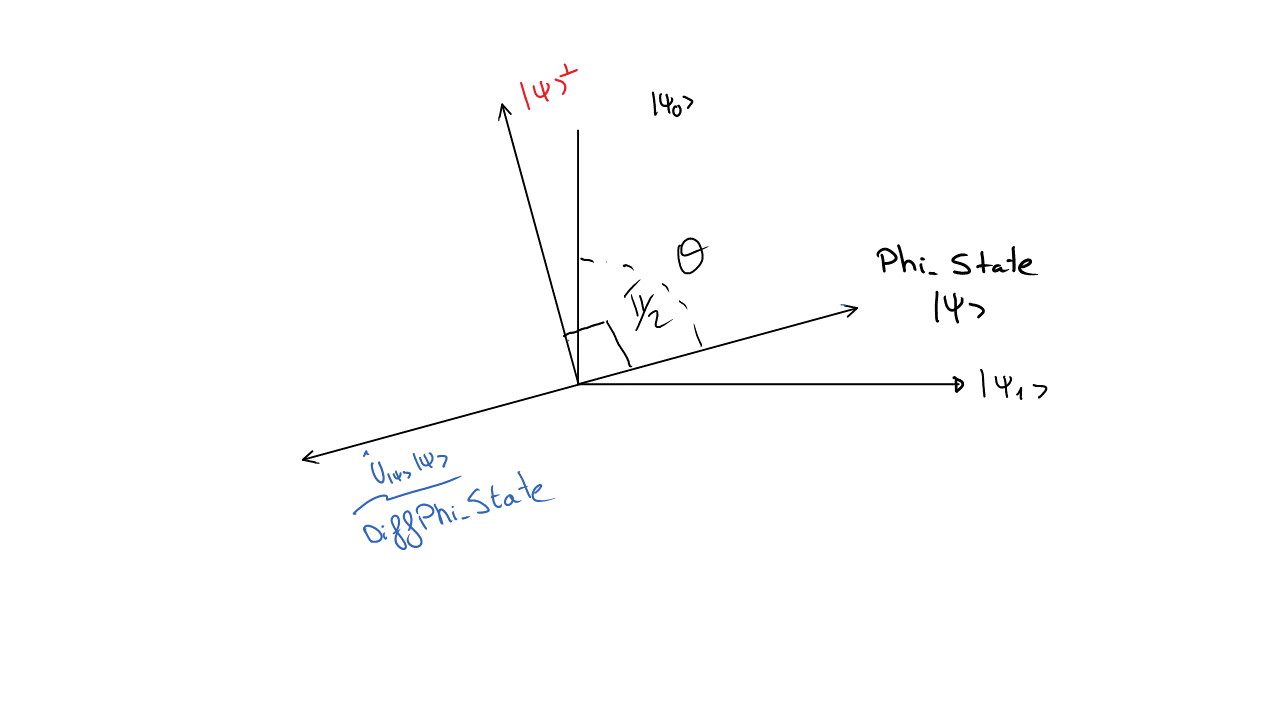 |ψ>⊥
|ψ₀>
θ
π/2
Phi_State
|ψ>
|ψ₁>
Û|ψ>|ψ>
DiffPhi_State